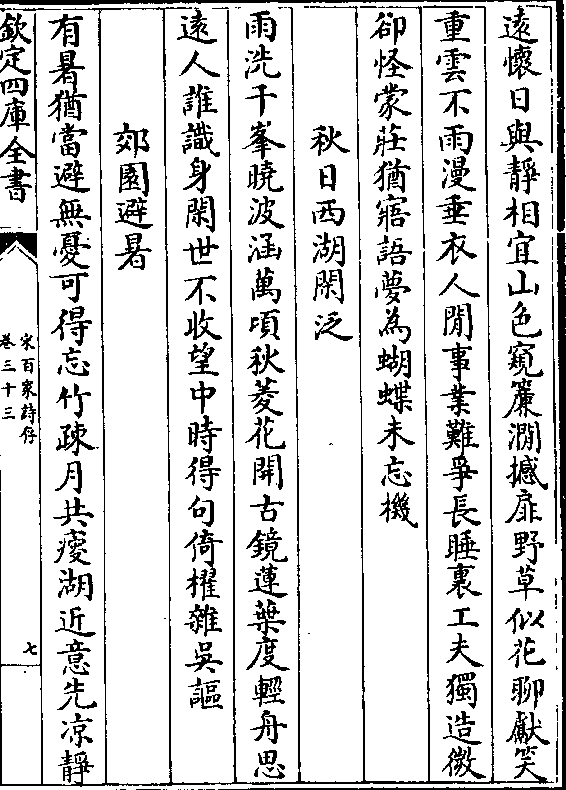 遠懐日與靜相宜山色窺簾澗撼扉野草似花聊獻笑
重雲不雨漫垂衣人閒事業難爭長睡裏工夫獨造微
卻怪蒙莊猶寤語夢為蝴蝶未忘機
秋日西湖閑泛
雨洗千峯曉波涵萬頃秋菱花開古鏡蓮葉度輕舟思
遠人誰識身閑世不收望中時得句倚櫂雜吳謳
郊園避暑
有暑猶當避無憂可得忘竹疎月共瘦湖近意先凉靜
欽定四庫全書
宋百家詩存
卷三十三
七